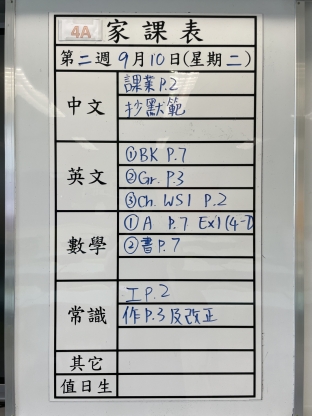 4A 家課表
第二週 9月10日(星期二)
中文
課業 P.2
抄默範
英文
①BK P.7
②Gr. P.3
③Ch. WS1 P.2
數學
①A P.7 Ex1(4-7)
②書P.7
常識
工P.2
作P.3及改正
其它
值日生